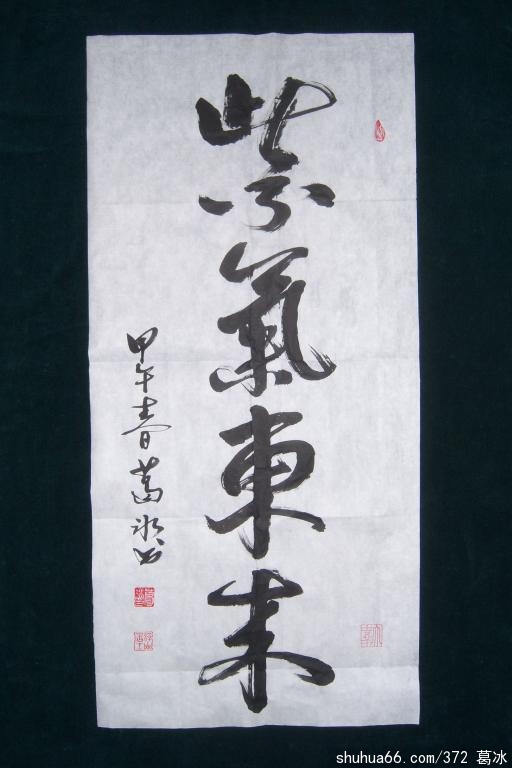 紫氣東来
甲午春葛冰
shuhua66.com/372 葛冰